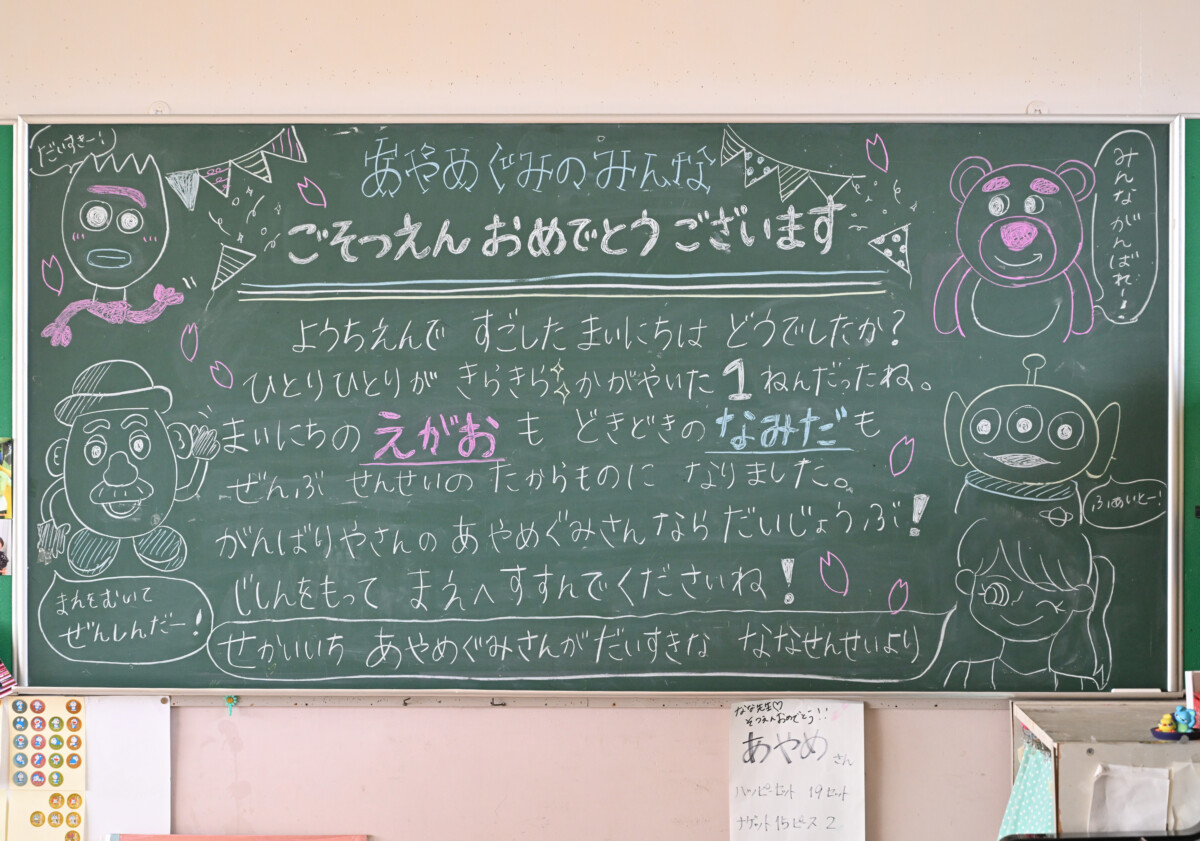 だいすきー!
あやめぐみのみんな
ごそつえん おめでとうございます
みんながんばれー!
ようちえんで すごした まいにちは どうでしたか?
ひとりひとりが きらきら かがやいた 1ねんだったね。
まいにちの えがお も どきどきの なみだも
ぜんぶ せんせいの たからものに なりました。
がんばりやさんの あやめぐみさん なら だいじょうぶ!
じしんをもって まえへすすんでくださいね!
ふぁいとー!
まえをむいて
ぜんしんだー!
せかいいち あやめぐみさんがだいすきな ななせんせいより
なな先生♡
そつえんおめでとう!!
あやめ さん
ハッピーセット 19セット
ナゲット 15ピース 2